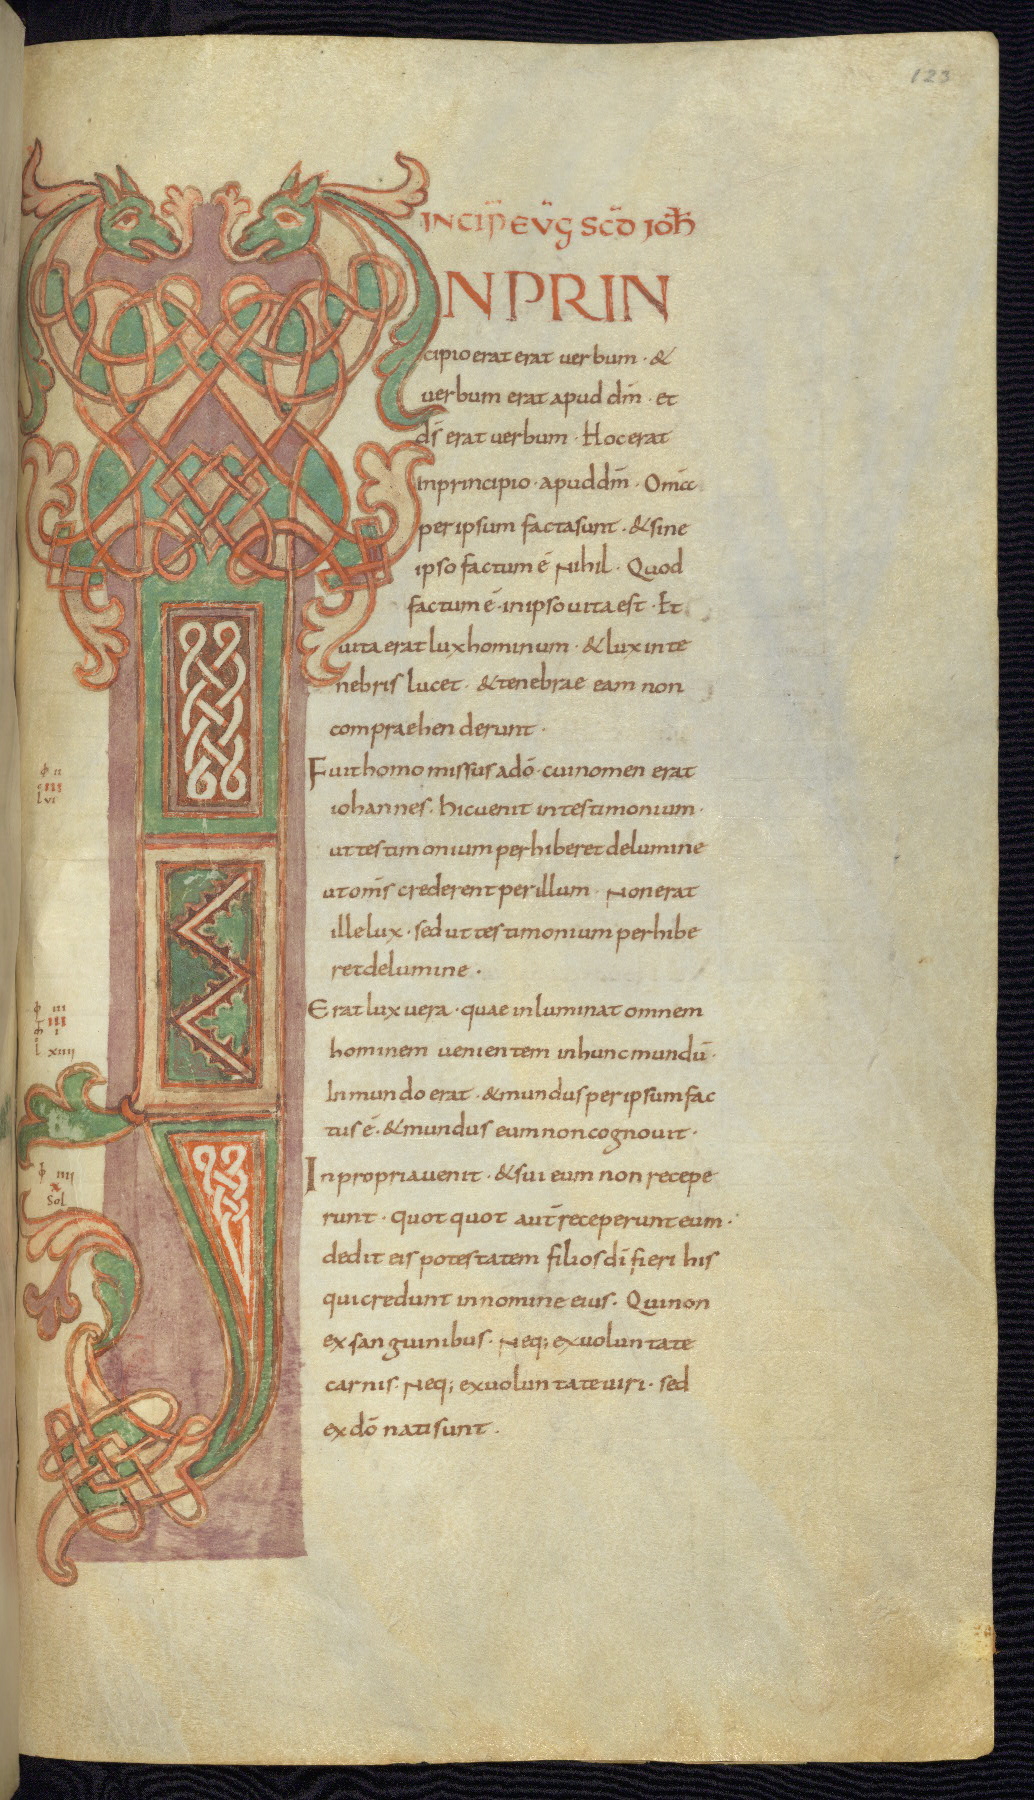 123
INCIP̄ EV̄G SCD̄ IOH̄
IN PRIN
cipio erat erat verbum · &
verbum erat apud dm̄ · et
ds̄ erat verbum · Hoc erat
in principio · apud dm̄ · Om̄
per ipsum facta sunt · & sine
ipso factum ē Nihil · Quod
factum ē · in ipso vita est · Et
vita erat lux hominum · & lux inte
nebris lucet · & tenebrae eam non
compraehenderunt ·
Fuit homo missus a dō · cui nomen erat
iohannes · hic venit in testimonium ·
ut testimonium perhiberet de lumine
ut om̄s crederent per illum · Non erat
ille lux · sed ut testimonium perhibe
ret de lumine ·
Erat lux vera · quae inluminat omnem
hominem venientem in hunc mundū ·
In mundo erat · & mundus per ipsum fac
tus ē · & mundus eum non cognovit ·
In propria venit · & sui eum non recepe
runt · Quotquot aut̄ receperunt eum ·
dedit eis potestatem filios dī fieri his
qui credunt in nomine eius · Qui non
ex sanguinibus · Neq; ex voluntate
carnis · Neq; ex voluntate viri · sed
ex dō nati sunt ·
ii
iii
lvi
iii
iii
i
xiiii
iiii
x
Sol